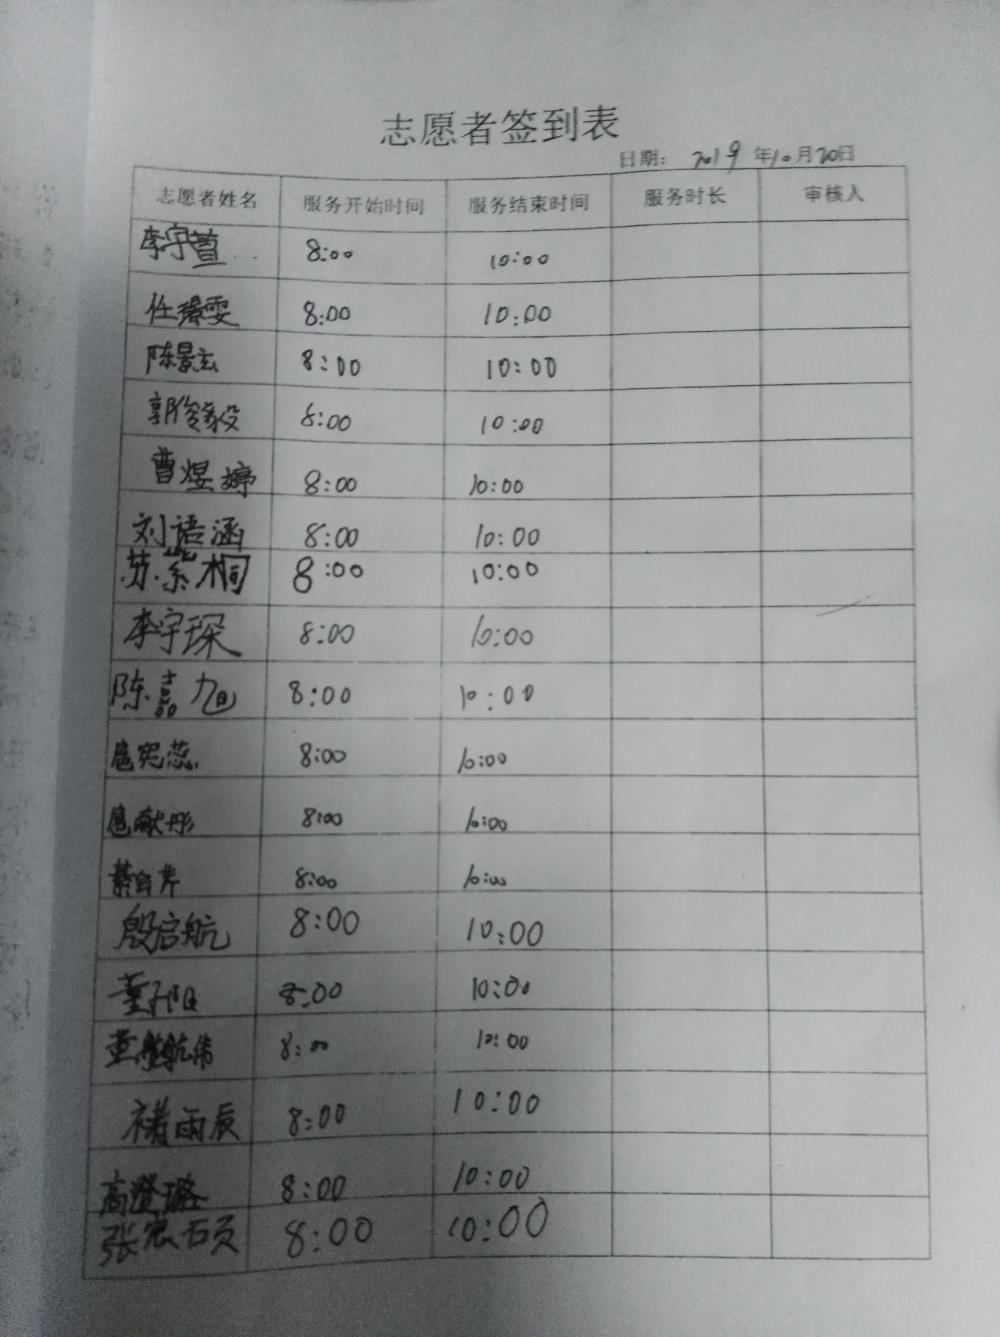 志愿者签到表
日期： 2019年10月20日
志愿者姓名 服务开始时间 服务结束时间 服务时长 审核人
李宇萱 8:00 10:00
任璟雯 8:00 10:00
陈景玄 8:00 10:00
郭俊毅 8:00 10:00
曹煜婷 8:00 10:00
刘语涵 8:00 10:00
苏紫桐 8:00 10:00
李宇琛 8:00 10:00
陈嘉旭 8:00 10:00
扈宪蕊 8:00 10:00
扈献彤 8:00 10:00
8:00 10:00
殷启航 8:00 10:00
董子阳 8:00 10:00
8:00 10:00
褚雨辰 8:00 10:00
高澄璐 8:00 10:00
张宸硕 8:00 10:00